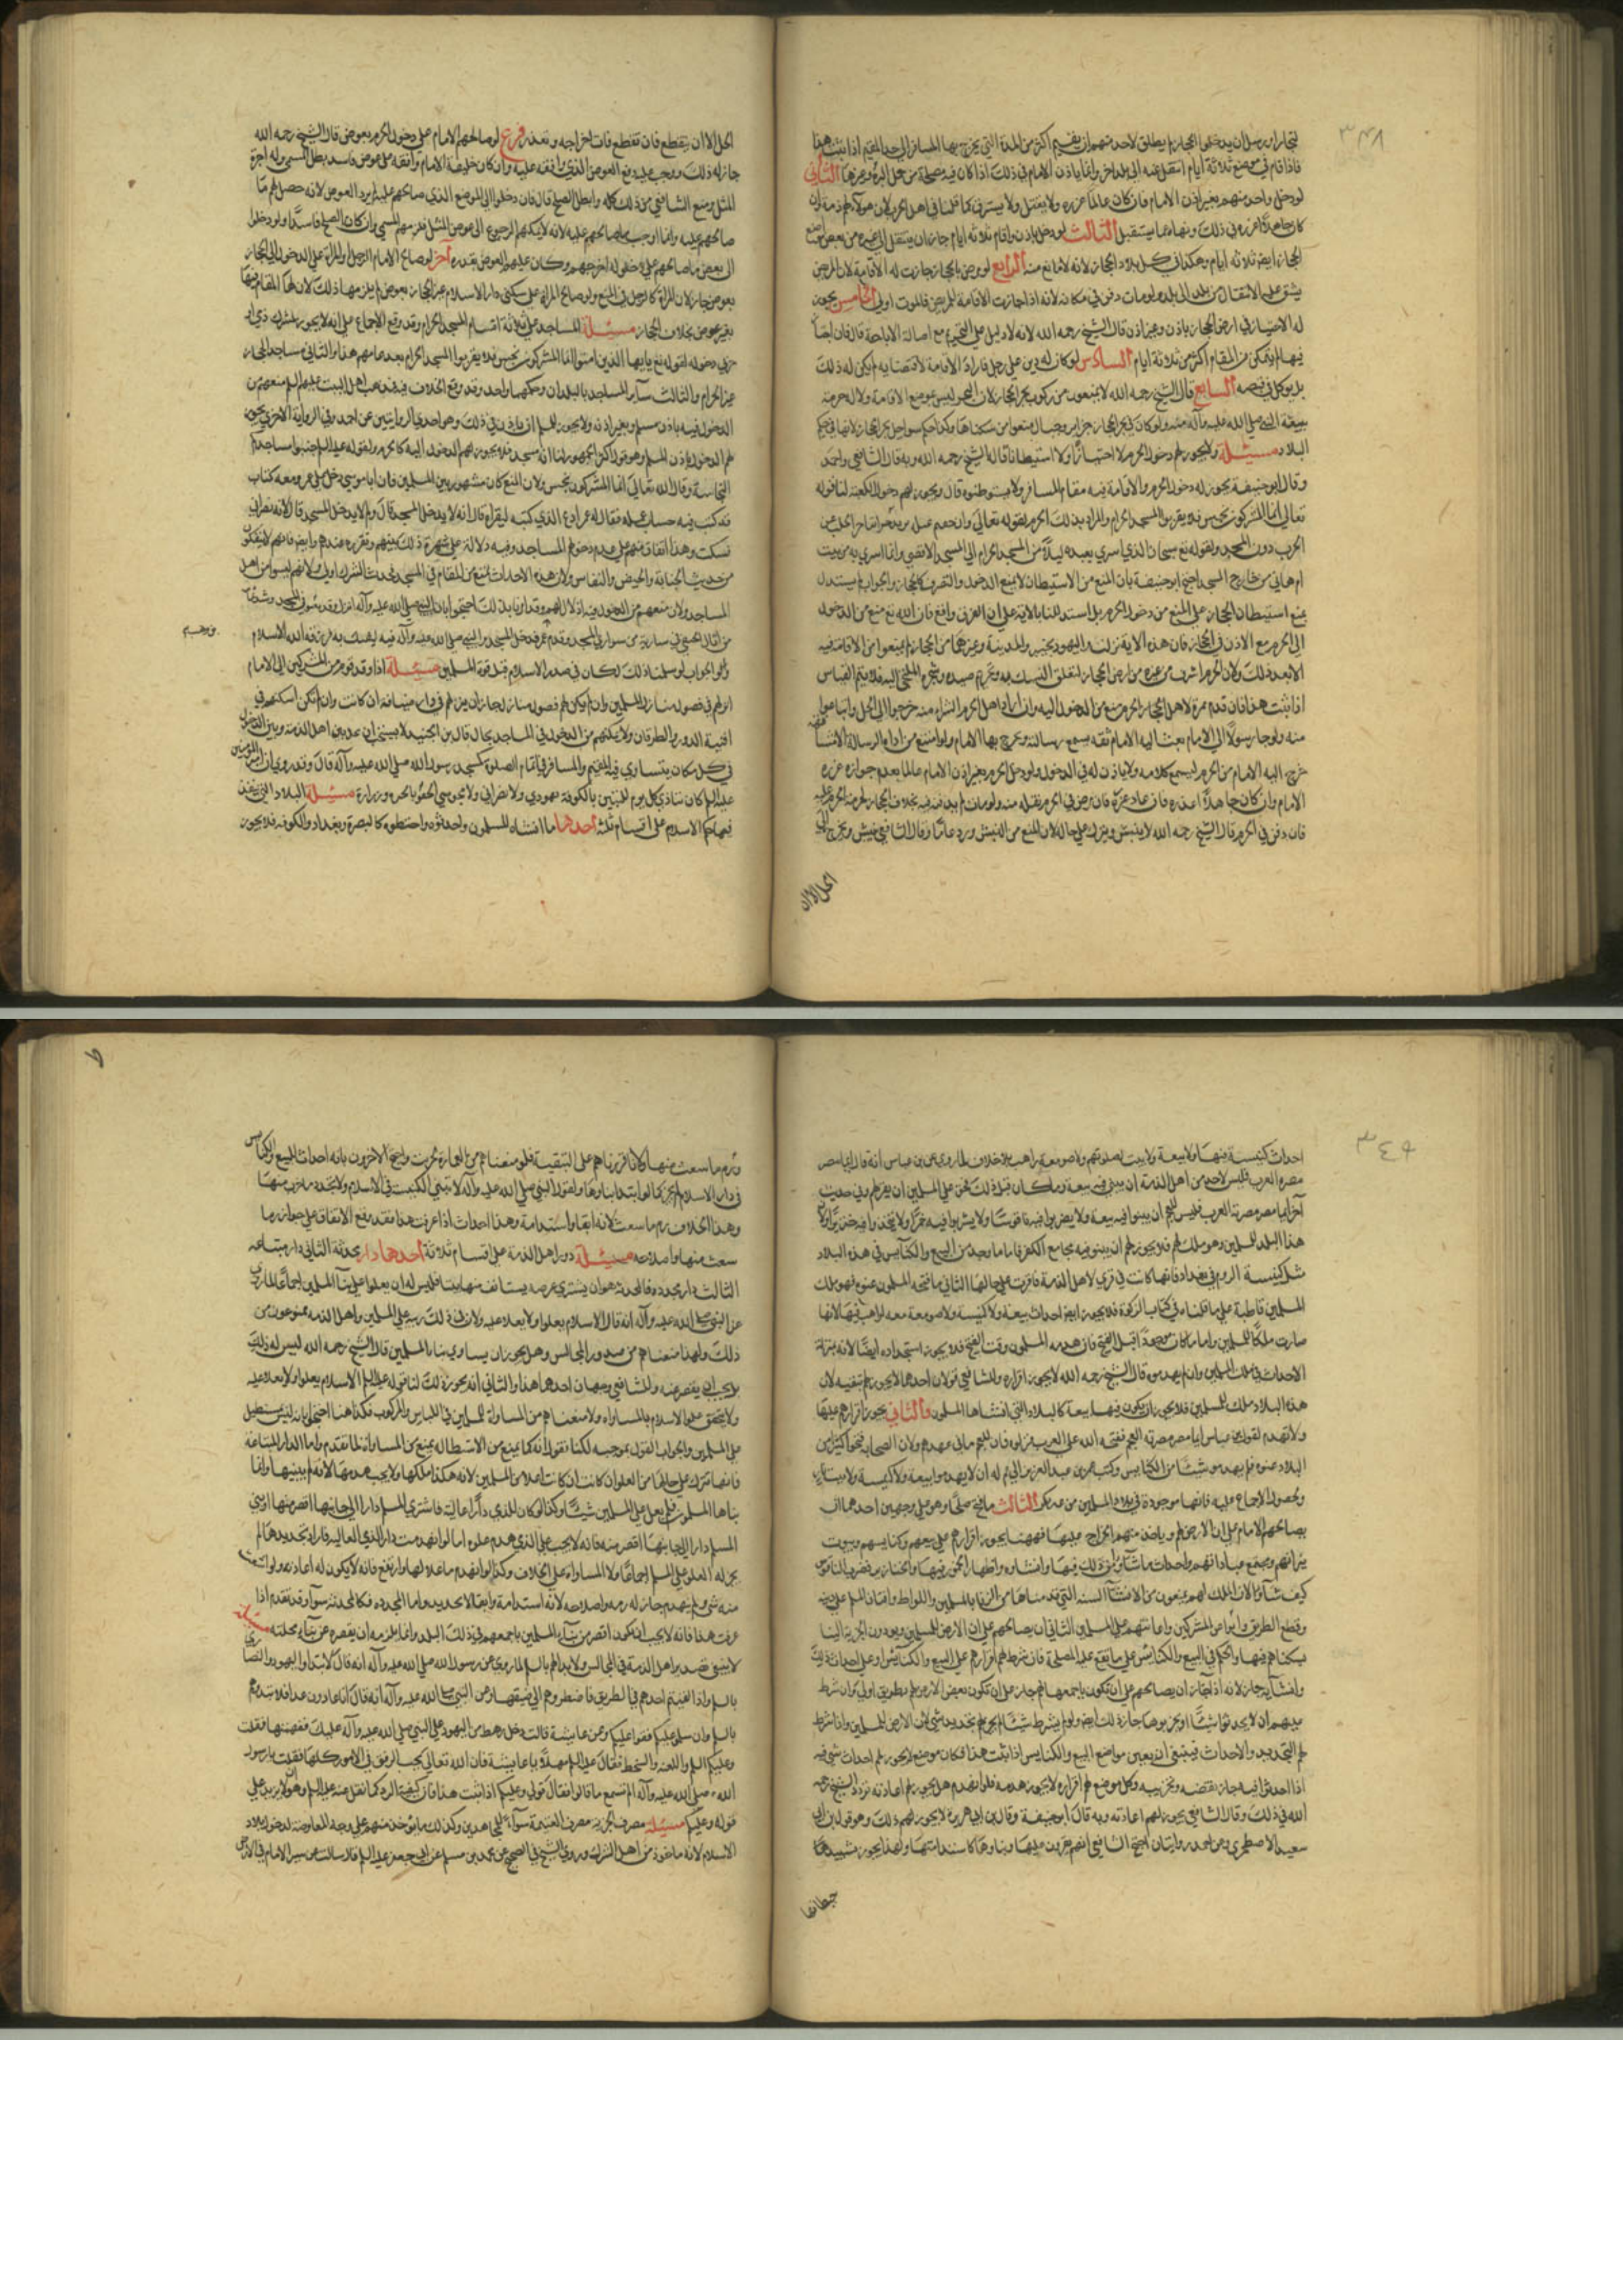 ٣٤٨
لتجارا ورسل ان يدخلوا الحجاز ولم يطلق لاحد منهم ان يقيم اكثر من المدة التي يخرج بها المسافر الى حد المقيم اذا ثبت هذا
فاذا اقام في موضع ثلاثة ايام انتقل عنه الى اخر وانما ياذن الامام في ذلك اذا كان فيه مصلحة من حمل البر وغيرها الثاني
لو دخل واحد منهم بغير اذن الامام فان كان عالما عزره ولا يقتل ولا يسترق كما قلنا في اهل الحرب لان هولاء لهم ذمة وان
كان جاهلا عذره في ذلك ونهاه عما يستقبل الثالث لو دخل باذن واقام ثلاثه ايام جاز ان ينتقل الى غيره من بعض مواضع
الحجاز ايضا ثلاثه ايام وهكذا في كل بلاد الحجاز لانه لا مانع منه الرابع لو مرض بالحجاز جازت له الاقامة لان المريض
يشق عليه الانتقال من بلد الى بلد ولو مات دفن في مكانه لانه اذا جازت الاقامة للمريض فالموت اولى الخامس يجوز
له الاجتياز في ارض الحجاز باذن وغير اذن قال الشيخ رحمه الله لانه لا دليل على التحريم مع اصالة الاباحة قال فان اجتاز
فيها لم يتمكن من المقام اكثر من ثلاثة ايام السادس لو كان له دين على رجل فاراد الاقامة لاقتضايه لم يكن له ذلك
بل يوكل في قبضه السابع قال الشيخ رحمه الله لا يمنعون من ركوب بحر الحجاز لان البحر ليس موضع الاقامة ولا له حرمة
ببعثة النبي صلى الله عليه وآله منه ولو كان في بحر الحجاز جزاير وجبال منعوا من سكناها وكذا حكم سواحل بحر الحجاز لانها في حكم
البلاد مسئلة ولا يجوز لهم دخول الحرم لا اجتيازا ولا استيطانا قاله الشيخ رحمه الله وبه قال الشافعي واحمد
وقال ابو حنيفة يجوز له دخول الحرم والاقامة فيه مقام المسافر ولا يستوطنوه قال ويجوز لهم دخول الكعبة لنا قوله
تعالى انما المشركون نجس فلا يقربوا المسجد الحرام والمراد بذلك الحرم لقوله تعالى وان خفتم عيلة
دون المسجد ولقوله تع سبحان الذي اسرى بعبده ليلا من المسجد الحرام الى المسجد الاقصى وانما اسري به من بيت
ام هاني من خارج المسجد احتج ابو حنيفة بان المنع من الاستيطان لا يمنع الدخول والتصرف كالحجاز والجواب لم يستدل
بمنع استيطان الحجاز على المنع من دخول الحرم بل استدللنا بالاية على ان الفرق واقع فان الله تع منع من الدخول
الى الحرم مع الاذن في الحجاز فان هذه الاية نزلت واليهود بخيبر والمدينة وغيرهما من الحجاز لم يمنعوا من الاقامة فيه
الا بعد ذلك ولان الحرم اشرف من غيره من ارض الحجاز لتعلق النسك به ويحرم صيده وشجره والملتجئ اليه فلا يتم القياس
اذا ثبت هذا فان قدم بميرة لاهل الحرم منع من الدخول اليه وان اراد اهل الحرم الشراء منه خرجوا الى الحل وابتاعوا
منه ولو جاء رسولا الى الامام بعث اليه الامام ثقه يسمع رسالته ويخرج بها الى الامام ولو امتنع من اداء الرسالة الا مشافهة
خرج اليه الامام من الحرم ليسمع كلامه ولا ياذن له في الدخول ولو دخل الحرم بغير اذن الامام عالما بعدم جوازه عزره
الامام وان كان جاهلا اعذره فان عاد عزره فان مرض في الحرم نقله منه ولو مات لم يدفنه فيه بخلاف الحجاز لحرمة الحرم
فان دفن في الحرم قال الشيخ رحمه الله لا ينبش ويترك على حاله لان المنع من النبش ورد عاما وقال الشافعي ينبش ويخرج الى
الحل الا ان
الحل الا ان يتقطع فان تقطع فات اخراجه وتعذر فرع لو صالحهم الامام على دخول الحرم بعوض قال الشيخ رحمه الله
جاز له ذلك ووجب عليه دفع العوض الذي وافقه عليه وان كان خليفة الامام ووافقه على عوض فاسد بطل المسمى وله اجرة
المثل ومنع الشافعي من ذلك كله وابطل الصلح قال فان دخلوا الى الموضع الذي صالحهم عليه لم يرد العوض لانه حصل لهم ما
صالحهم عليه وانما اوجب ما صالحهم عليه لانه لا يمكنهم الرجوع الى عوض المثل فلزمهم المسمى وان كان الصلح فاسدا ولو دخلوا
الى بعض ما صالحهم على دخوله اخرجهم وكان عليهم العوض بقدره آخر لو صالح الامام الرجل او المراة على الدخول الى الحجاز
بعوض جاز لان المراة كالرجل في المنع ولو صالح المراة على سكنى دار الاسلام غير الحجاز بعوض لم يلزمها ذلك لان لها المقام فيها
بغير عوض بخلاف الحجاز مسئلة المساجد على ثلثة اقسام المسجد الحرام وقد وقع الاجماع على انه لا يجوز لمشرك ذمي او
حربي دخوله لقوله تع يا ايها الذين امنوا انما المشركون نجس فلا يقربوا المسجد الحرام بعد عامهم هذا والثاني مساجد الحجاز
غير الحرام والثالث سآير المساجد بالبلدان وحكمها واحد وقد وقع الخلاف فيه فمذهب اهل البيت عليهم السلم منعهم من
الدخول فيه باذن مسلم وبغير اذنه ولا يجوز للمسلم ان ياذن في ذلك وهو احدى الروايتين عن احمد وفي الرواية الاخرى يجوز
لهم الدخول باذن المسلم وهو قول اكثر الجمهور لنا انه مسجد فلا يجوز لهم الدخول اليه كالحرم ولقوله عليه السلم جنبوا مساجدكم
النجاسة وقال الله تعالى انما المشركون نجس ولان المنع كان مشهورا بين المسلمين فان ابا موسى دخل على عمر ومعه كتاب
قد كتب فيه حساب عمله فقال له عمر ادع الذي كتبه ليقراه قال انه لا يدخل المسجد قال ولم لا يدخل المسجد قال لانه نصراني
فسكت وهذا اتفاق منهم على عدم دخولهم المساجد وفيه دلالة على شهرة ذلك بينهم وتقرره عندهم وايضا فانهم لا ينفكون
من حدث الجنابة والحيض والنفاس ولان هذه الاحداث تمنع من المقام في المسجد فحدث الشرك اولى ولانهم ليسوا من اهل
المساجد ولان منعهم من الدخول فيه اذلال لهم وقد امرنا بذلك احتجوا بان النبي صلى الله عليه وآله انزل وفد ثقيف في المسجد وشد ثمامة
من اثال الحنفي في سارية من سواري المسجد وقدم عمير فدخل المسجد والنبي صلى الله عليه وآله فيه ليفتك به فرزقه الله الاسلام
والجواب لو سلمنا ذلك لكان في صدر الاسلام قبل قوة المسلمين مسئلة اذا وفد قوم من المشركين الى الامام
انزلهم في فضول منازل المسلمين وان لم يكن لهم فضول منازل جاز ان ينزلهم في دار ضيافة ان كانت وان لم تكن اسكنهم في
افنية الدور والطرقات ولا يمكنهم من الدخول في المساجد بحال قال ابن الجنيد
في كل مكان يتساوى فيه المقيم والمسافر في اقام الصلوة كمسجد رسول الله صلى الله عليه وآله قال وقد روي ان امير المؤمنين
عليه السلم كان ينادي كل يوم لا يبيتن بالكوفة يهودي ولا نصراني ولا مجوسي الحقوا بالحيرة وزرارة مسئلة البلاد التي ينفذ
فيها حكم الاسلام على اقسام ثلثه احدها ما انشاه المسلمون واحدثوه واختطوه كالبصرة وبغداد والكوفه فلا يجوز
٣٤٩
احداث كنيسة فيها ولا بيعة ولا بيت لصلوتهم ولا صومعة راهب بلا خلاف لما روي عن ابن عباس انه قال ايما مصر
مصره العرب فليس لاحد من اهل الذمة ان يبني فيه بيعة وما كان قبل ذلك فحق على المسلمين ان يفوا لهم وفي حديث
آخر ايما مصر مصرته العرب فليس للعجم ان يبنوا فيه بيعة ولا يضربوا فيه ناقوسا ولا يشربوا فيه خمرا ولا يتخذوا فيه خنزيرا ولان
هذا البلد للمسلمين وهو ملك لهم فلا يجوز لهم ان يبنوا فيه مجامع الكفر فاما ما وجد من البيع والكنايس في هذه البلاد
مثل كنيسة الروم في بغداد فانها كانت في قرى لاهل الذمة فاقرت على حالها الثاني ما فتحه المسلمون عنوة فهو ملك
المسلمين قاطبة على ما قلناه في كتاب الزكوة فلا يجوز ايضا احداث بيعة ولا كنيسة ولا صومعة راهب فيها لانها
صارت ملكا للمسلمين واما ما كان موجودا قبل الفتح فان هدمه المسلمون وقت الفتح فلا يجوز استجداده ايضا لانه بمنزلة
الاحداث في ملك المسلمين وان لم يهدموه قال الشيخ رحمه الله لا يجوز اقراره وللشافعي قولان احدهما لا يجوز لهم تبقيه لان
هذه البلاد ملك للمسلمين فلا يجوز ان يكون فيها بيعة كالبلاد التي انشاها المسلمون والثاني يجوز اقرارهم عليها
ولا تهدم لقول ابن عباس ايما مصر مصرته العجم ففتحه الله على العرب فنزلوه فان للعجم ما في عهدهم ولان الصحابه فتحوا كثيرا من
البلاد عنوة فلم يهدموا شيئا من الكنايس وكتب عمر بن عبد العزيز الى عماله ان لا يهدموا بيعة ولا كنيسة ولا بيت نار
ولحصول الاجماع عليه فانها موجودة في بلاد المسلمين من غير نكير الثالث ما فتح صلحا وهو على وجهين احدهما ان
يصالحهم الامام على ان الارض لهم وياخذ منهم الخراج عليها فههنا يجوز اقرارهم على بيعهم وكنايسهم وبيوت
نيرانهم ومجتمع عباداتهم واحداث ما شآؤا من ذلك فيها وانشاوه واظهار الخمور فيها والخنازير وضرب الناقوس
كيف شآؤا لان الملك لهم ويمنعون من الاشيآء السته التي قدمناها من الزنا بالمسلمين واللواط وافتتان المسلم عن دينه
وقطع الطريق وايواء عين المشركين واعانتهم على المسلمين الثاني ان يصالحهم على ان الارض للمسلمين ويودون الجزية الينا
بسكناهم فيها والحكم في البيع والكنايس على ما يقع عليه المصلحة فان شرط لهم اقرارهم على البيع والكنايس او على احداث ذلك
وانشآيه جاز لانه اذا جاز ان يصالحهم على ان تكون باجمعها لهم جاز على ان تكون بعض الارض لهم بطريق اولى وان شرط
عليهم ان لا يحدثوا شيئا او يخربوها جاز ذلك ايضا ولو لم يشرط شيئا لم يجز لهم تجديد شي لان الارض للمسلمين واذا شرط
لهم التجديد والاحداث فينبغي ان يعين مواضع البيع والكنايس اذا ثبت هذا فكل موضع لا يجوز لهم احداث شي فيه
اذا احدثوا فيه جاز نقضه وتخريبه وكل موضع لهم اقراره لا يجوز هدمه فلو انهدم هل يجوز لهم اعادته تردد الشيخ رحمه
الله في ذلك وقال الشافعي يجوز لهم اعادته وبه قال ابو حنيفة وقال ابن ابي هريرة لا يجوز لهم ذلك وهو قول ابي
سعيد الاصطخري وعن احمد روايتان احتج الشافعي انهم يقرون عليها وبناوها كاستدامتها ولهذا يجوز تشييد
حيطانها
ورم ما تشعث منها
في دار الاسلام فلم يجز كما لو ابتدا بناوها ولقول النبي صلى الله عليه وآله لا تبنى الكنيسة في الاسلام ولا يجدد ما خرب منها
وهذا بخلاف رم ما تشعث لانه ابقاء واستدامة وهذا احداث اذا عرفت هذا فقد وقع الاتفاق على جواز رم ما
تشعث منها واصلاحه مسئلة دور اهل الذمة على اقسام ثلاثة احدها دار محدثة الثاني دار مبتاعه
الثالث دار مجدده فالمحدثة هو ان يشتري عرصه يستانف فيها بناء فليس له ان يعلو على بناء المسلمين اجماعا لما روي
عن النبي صلى الله عليه وآله انه قال الاسلام يعلو ولا يعلا عليه ولان في ذلك رتبة على المسلمين واهل الذمه ممنوعون من
ذلك ولهذا منعناهم من صدور المجالس وهل يجوز ان يساوي بناء المسلمين قال الشيخ رحمه الله ليس له ذلك
بل يجب ان يقصر عنه وللشافعي وجهان احدهما هذا والثاني انه يجوز ذلك لنا قوله عليه السلم الاسلام يعلو ولا يعلا عليه
ولا يتحقق علو الاسلام بالمساواه ولانا منعناهم من المساواة للمسلمين في اللباس والركوب فكذا هنا احتجوا بانه ليس يستطيل
على المسلمين والجواب القول بموجبه لكنا نقول انه كما يمنع من الاستطاله يمنع من المساواة لما تقدم واما الدار المبتاعة
فانها تترك على حالها من العلو ان كانت اعلا من المسلمين لانه هكذا ملكها ولا يجب هدمها لانه لم يبنها وانما
بناها المسلمون فلم يعل على المسلمين شيئا وكذا لو كان للذمي دار عالية فاشترى المسلم دارا الى جانبها اقصر منها او بنى
المسلم دارا الى جانبها اقصر منه فانه لا يجب على الذمي هدم علوه اما لو انهدمت دار الذمي العالية فاراد تجديدها لم
يجز له العلو على المسلم اجماعا ولا المساواة على الخلاف وكذا لو انهدم ما علا منها وارتفع فانه لا يكون له اعادته ولو تشعث
منه شي ولم ينهدم جاز له رمه واصلاحه لانه استدامة وابقاء لا تجديد واما المجدده فكالمحدثة سوآء وقد تقدم اذا
عرفت هذا فانه لا يجب ان يكون اقصر من بنآء المسلمين باجمعهم في ذلك البلد وانما يلزمه ان يقصره عن بنآء محلته مسئلة
لا ينبغي تصدير اهل الذمة في المجالس ولا بداتهم بالسلم لما روي عن رسول الله صلى الله عليه وآله انه قال لا تبتدوا اليهود والنصارى
بالسلم واذا لقيتم احدهم في الطريق فاضطروهم الى ضيقها وعن النبي صلى الله عليه وآله انه قال انا غادون غدا فلا تبدوهم
بالسلم وان سلموا عليكم فقولوا وعليكم وعن عايشة قالت دخل رهط من اليهود على النبي صلى الله عليه وآله ففهمتها فقلت
وعليكم السلم واللعنة والسخط فقال عليه السلم مهلا يا عايشة فان الله تعالى يحب الرفق في الامور كلها فقلت يا رسول
الله صلى الله عليه وآله الم تسمع ما قالوا فقال قولي وعليكم اذا ثبت هذا فان كيفية الرد كما نقل عنه عليه السلم وهو ان لا يزيد على
قوله وعليكم مسئله مصرف الجزية مصرف الغنيمة سوآء للمجاهدين وكذلك ما يؤخذ منهم على وجه المعاوضة لدخول بلاد
الاسلام لانه ماخوذ من اهل الشرك وروى الشيخ في الصحيح عن محمد بن مسلم عن ابي جعفر عليه السلم قال سالته عن سيرة الامام في الارض